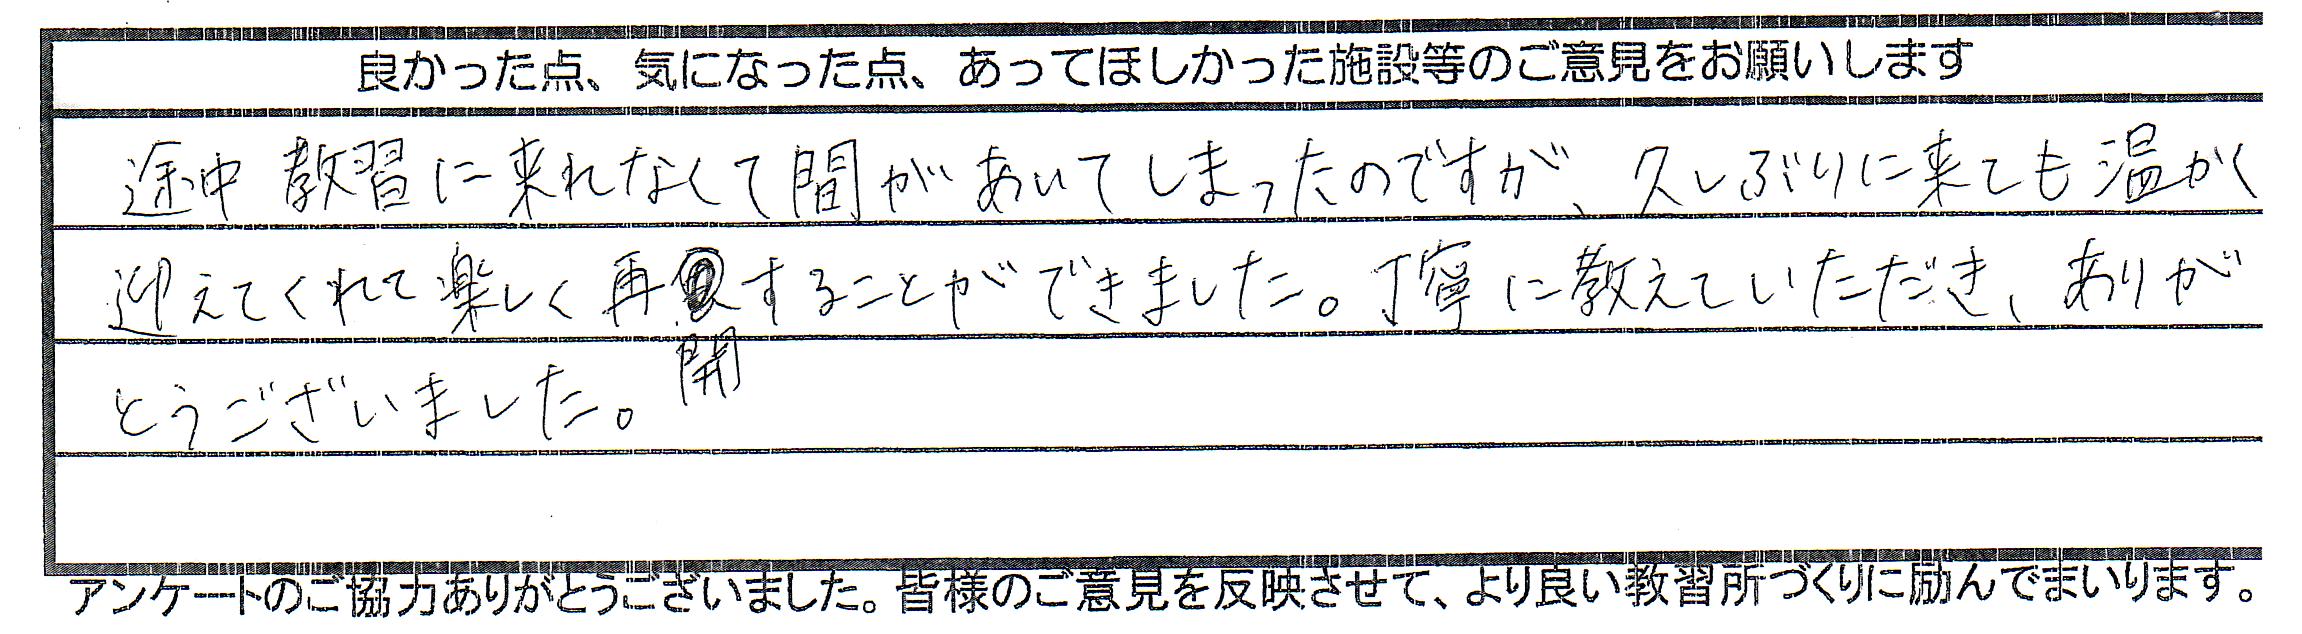 良かった点、気になった点、あってほしかった施設等のご意見をお願いします
途中教習に来れなくて間があいてしまったのですが、久しぶりに来ても温かく
迎えてくれて楽しく再開することができました。丁寧に教えていただき、ありが
とうございました。
アンケートのご協力ありがとうございました。皆様のご意見を反映させて、より良い教習所づくりに励んでまいります。